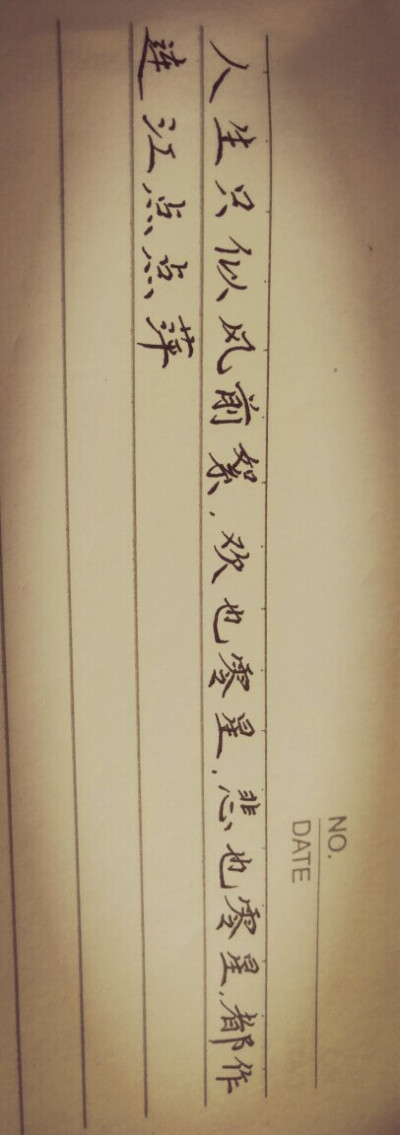 NO.
DATE
人生只似风前絮，欢也零星，悲也零星，都作
连江点点萍